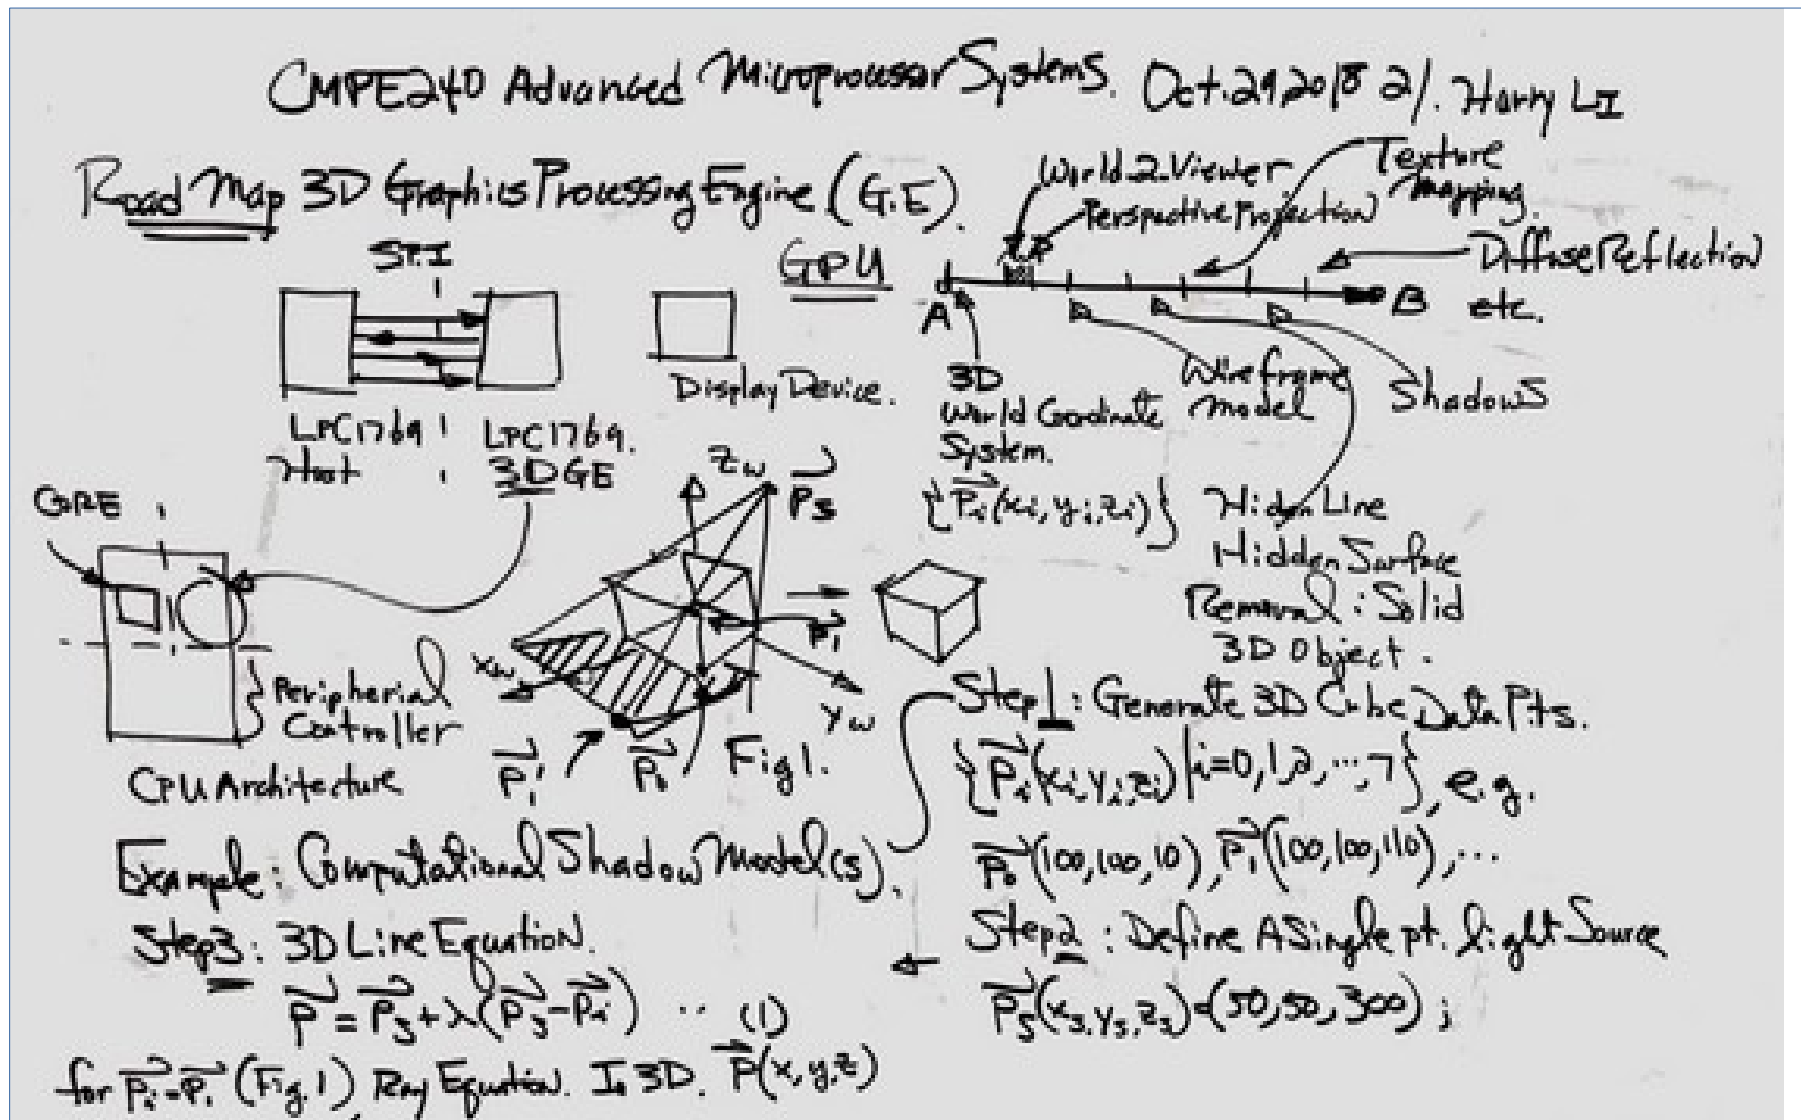 CMPE240 Advanced Microprocessor Systems. Oct. 29, 2018 2/. Harry LI
Road Map 3D Graphics Processing Engine (G.E).
SPI
LPC1769
Host
LPC1769.
3D GE
Display Device.
GPU
World-2-Viewer
Perspective Projection
Texture
Mapping.
Diffuse Reflection
etc.
A
B
3D
World Coordinate
System.
{P⃗i(xi, yi, zi)}
Wireframe
Model
Shadows
Hidden Line
Hidden Surface
Removal : Solid
3D Object .
CORE
Peripherial
Controller
CPU Architecture
Zw
P⃗s
P⃗1
Xw
Yw
P⃗1'
P⃗0
Fig 1.
Example: Computational Shadow Model(s).
Step1: Generate 3D Cube Data Pts.
{P⃗i(xi, yi, zi) | i=0,1,2,...,7}, e.g.
P⃗0(100,100,10), P⃗1(100,100,110), ...
Step2 : Define A Single pt. light Source
P⃗s(xs, ys, zs)=(50,50,300) ;
Step3: 3D Line Equation.
P⃗ = P⃗s + λ(P⃗s - P⃗i) .. (1)
for P⃗i = P⃗1 (Fig. 1) Ray Equation. In 3D. P⃗(x, y, z)